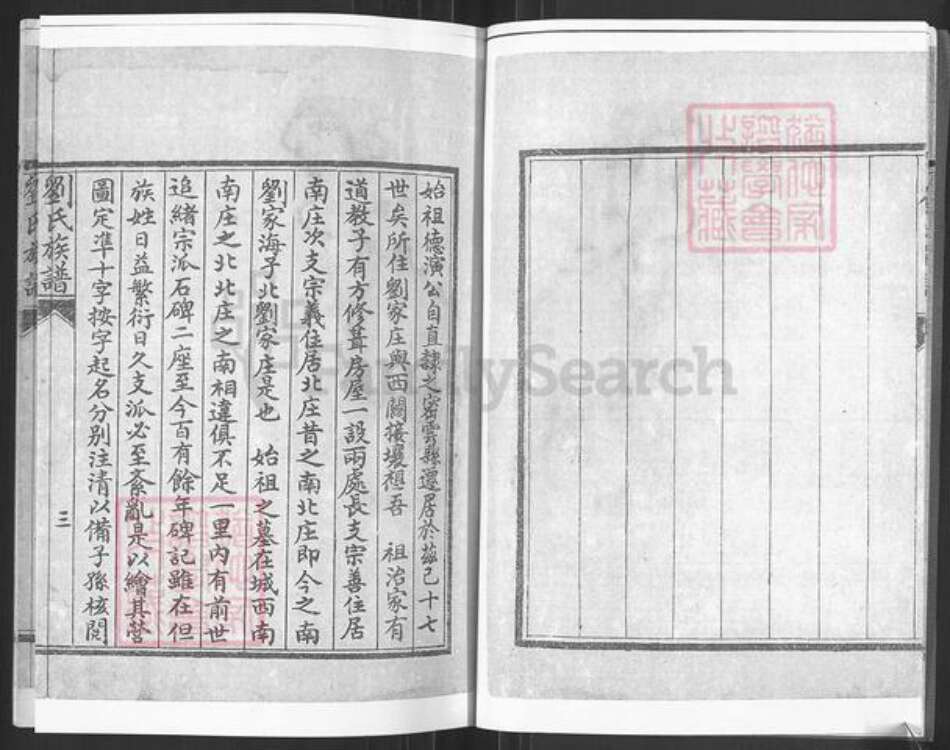 始祖德演公自直隸之密雲縣遷居於茲已十七
世矣所住劉家庄與西關接壤想吾　祖治家有
道教子有方修葺房屋一設兩處長支宗善住居
南庄次支宗義住居北庄昔之南北庄即今之南
劉家海子北劉家庄是也　始祖之墓在城西南
南庄之北北庄之南相違俱不足一里內有前世
追緒宗派石碑二座至今百有餘年碑記雖在但
族姓日益繁衍日久支派必至紊亂是以繪其營
圖定準十字按字起名分別注清以備子孫核閱
劉氏族譜
三
FamilySearch